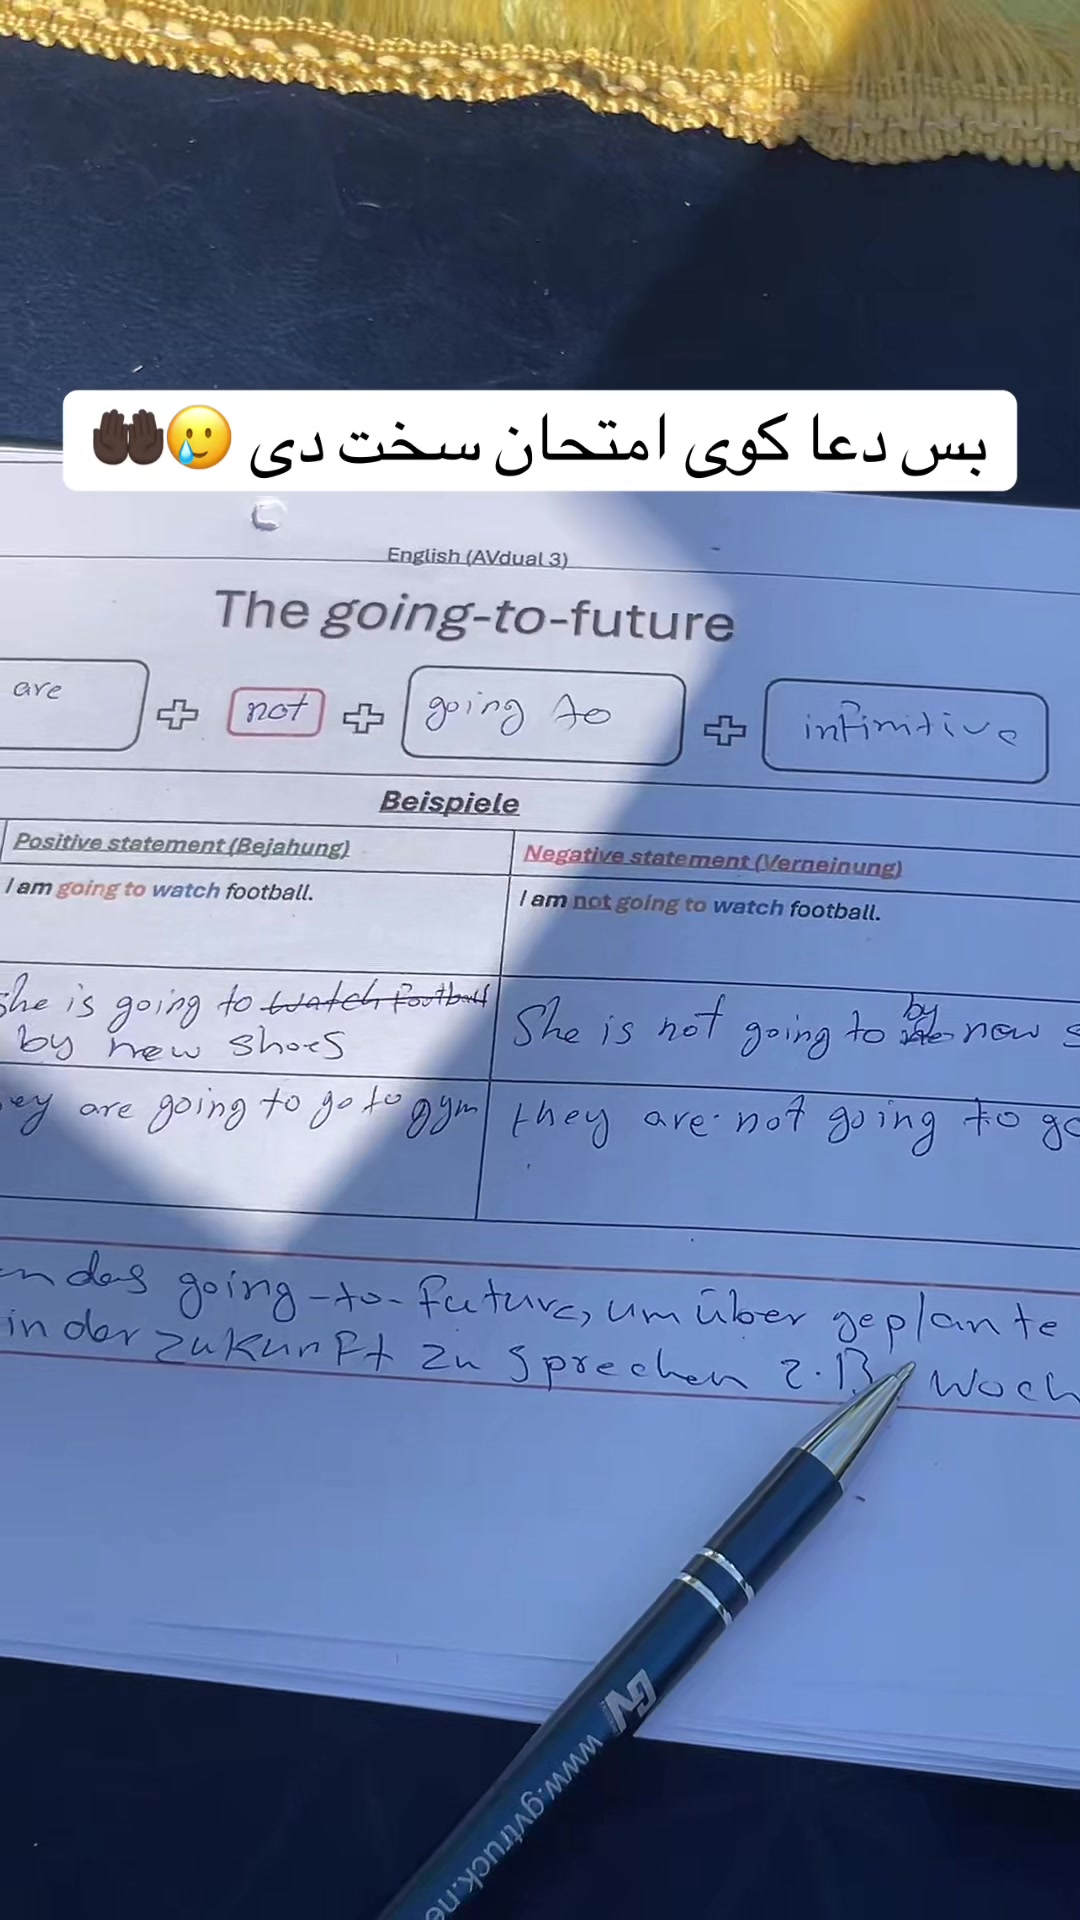 بس دعا کوی امتحان سخت دی 🥲🤲🏿
English (AVdual 3)
The going-to-future
are + not + going to + infinitive
Beispiele
Positive statement (Bejahung)
Negative statement (Verneinung)
I am going to watch football.
I am not going to watch football.
She is going to watch football
by new shoes
She is not going to by new
are going to go to gym
they are not going to go
das going-to-future, um über geplante
in der zukunft zu sprechen z.B
www.gvtruck.ne